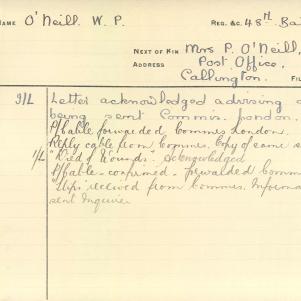 NAME O'Neill. W. P. REG. &C. 48TH. Ba
NEXT OF KIN Mrs P. O'Neill,
ADDRESS Post Office,
Callington. FIL
3/L Letter acknowledged advising
being sent Commis. London.
P/Cable forwarded Commes London.
Reply cable from Commes. Copy of same s
1/L "Died of Wounds". Acknowledged
P/Cable - confirmed - forwarded Comm
"Slips" received from Commes. Informa
sent Inquirer